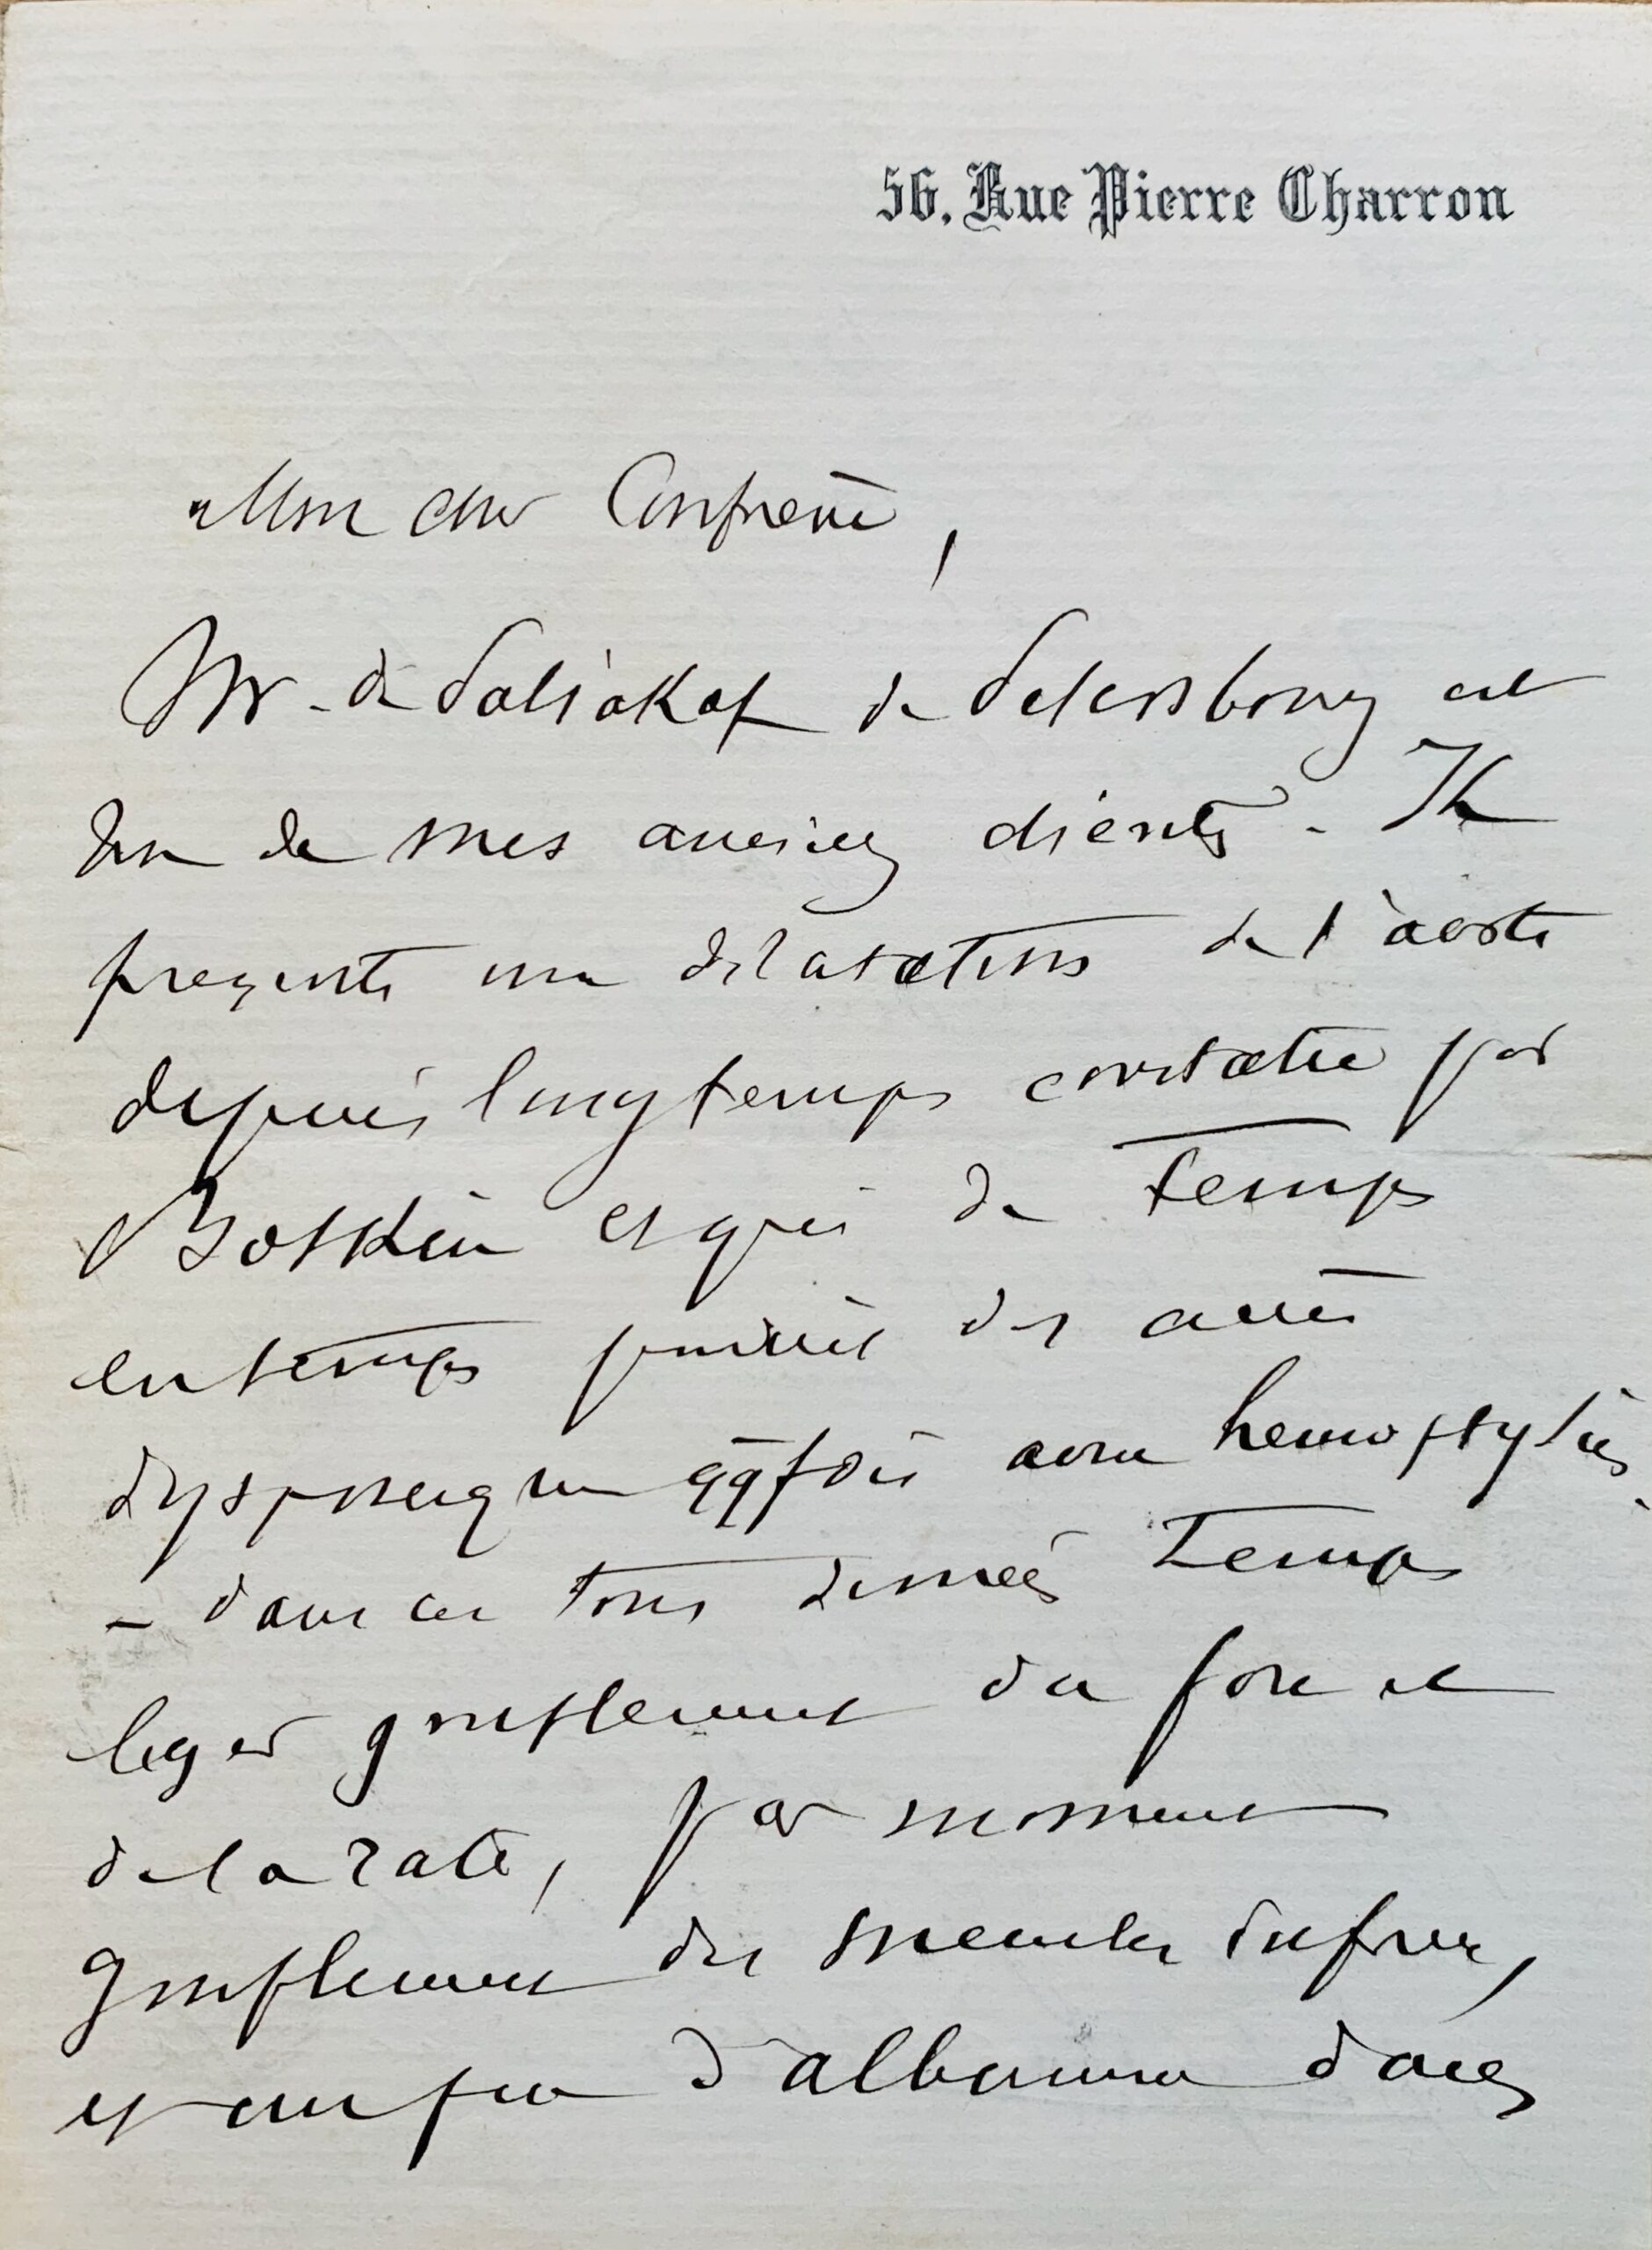 56, Rue Pierre Charron
Mon cher Confrère,
Mr. de Poliakof de Petersbourg est
un de mes anciens clients. Il
presente une dilatation de l'aorte
depuis longtemps constatée par
Botkin et qui de temps
en temps produit des accès
dyspneique qqfois avec hemoptysies.
– dans ces tous derniers temps
leger gonflement du foie et
de la rate, par moment
gonflement des membres infers,
et un peu d'albumine dans